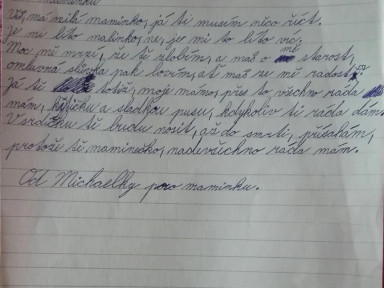 maminku
Víš, má milá maminko, já ti musím něco říct.
Je mi líto malinko, ne, je mi to líto víc.
Moc mě mrzí, že tě zlobím, a máš o mě starost,
omluvná slůvka pak lovím, ať máš ze mě radost.
Já ti totiž, moje mámo, přes to všechno ráda
mám, kytičku a sladkou pusu, kdykoliv ti ráda dám.
V srdíčku tě budu nosit, až do smrti, přísahám,
protože ti, maminečko, nadevšechno ráda mám.
Od Michaelky pro maminku.